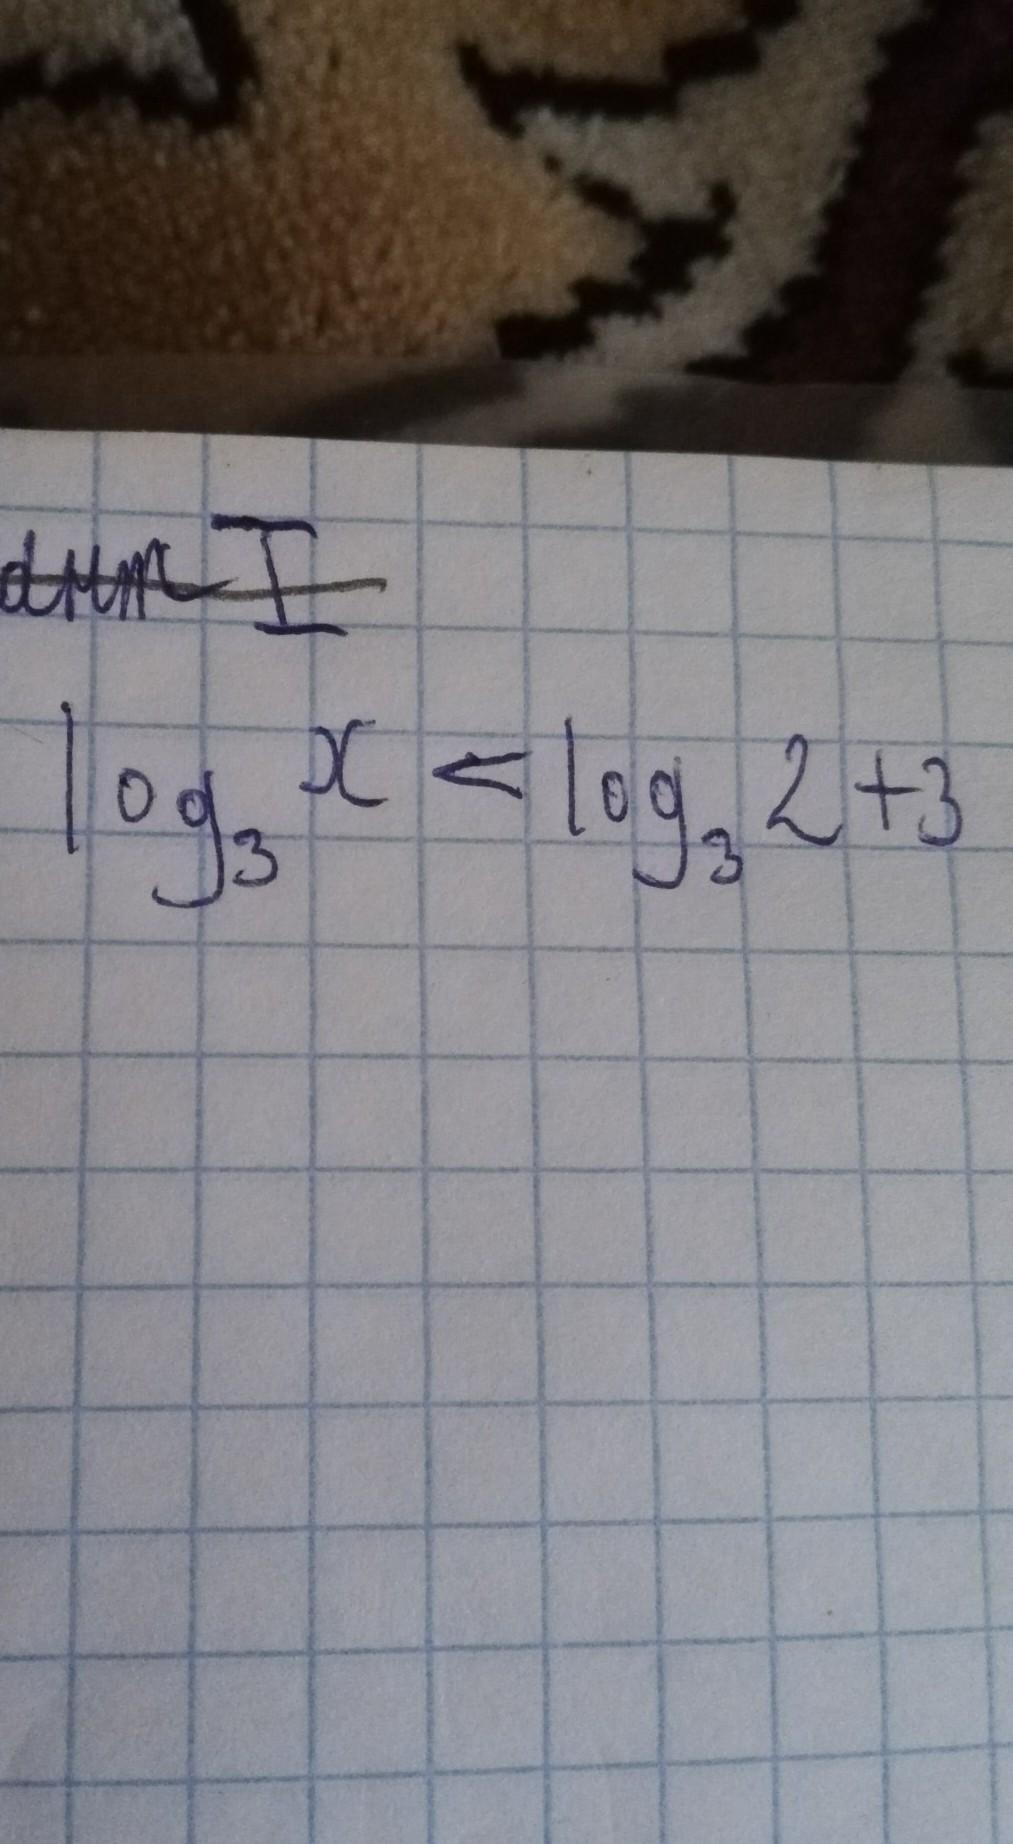 I
log₃ x < log₃ 2 + 3